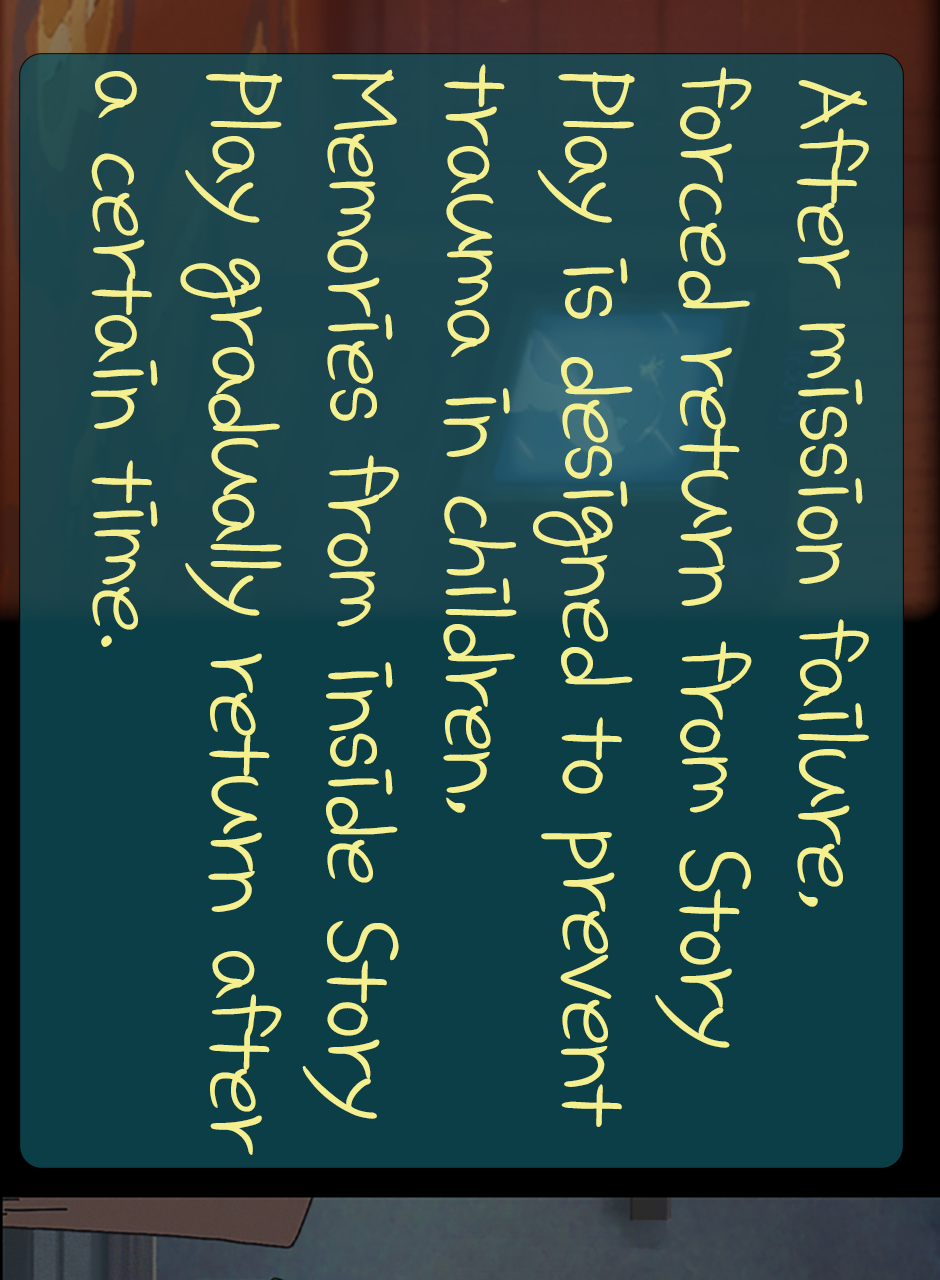 After mission failure,
forced return from Story
Play is designed to prevent
trauma in children,
Memories from inside Story
Play gradually return after
a certain time.